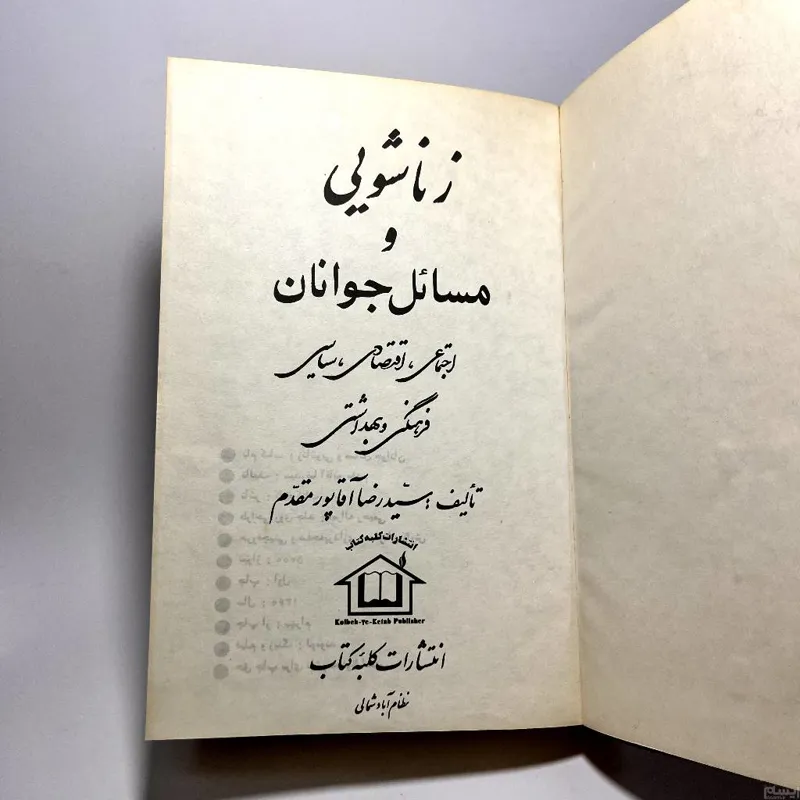 زناشویی
و
مسائل جوانان
اجتماعی، اقتصادی، سیاسی
فرهنگی و بهداشتی
تألیف: سیّدرضا آقاپور مقدّم
انتشارات کلبه کتاب
Kolbeh-ye-Ketab Publisher
انتشارات کلبهٔ کتاب
نظام آباد شمالی
ایسام